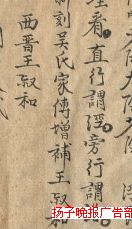 理看直行謂浮旁行謂
新刻吳氏家傳增補王叔和
西晋王叔和
扬子晚报广告部